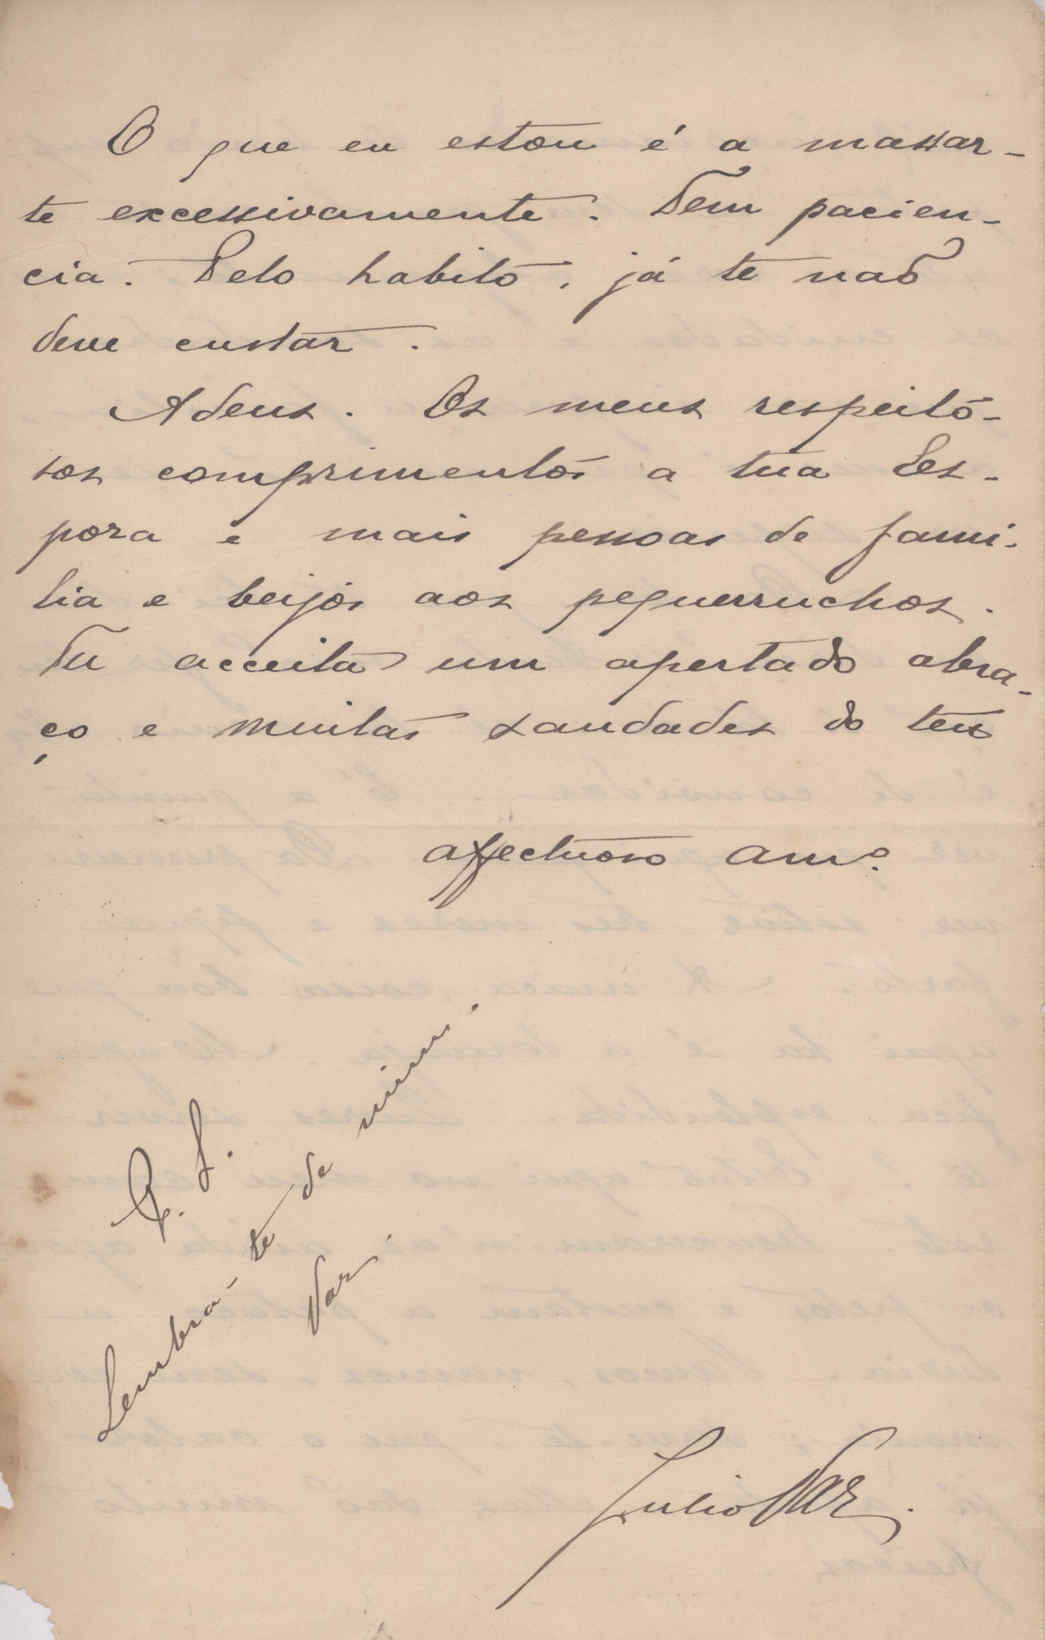 O que eu estou é a massar-
te excessivamente. Tem pacien-
cia. Pelo habito, já te não
deve custar.
Adeus. Os meus respeito-
sos comprimentos a tua Es-
poza e mais pessoas de fami-
lia e beijos aos pequerruchos.
Tu acceita um apertado abra-
ço e muitas saudades do teu
affectuoso amº.
P. S.
Lembra-te de mim.
Vaz.
Julio Vaz.